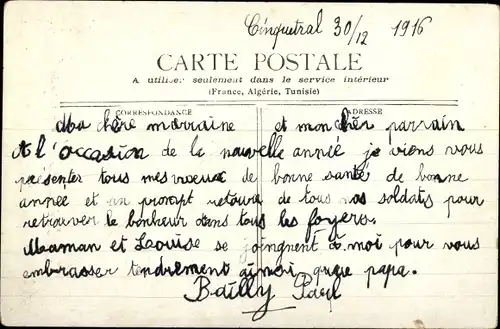 Cinquetral 30/12 1916
CARTE POSTALE
A utiliser seulement dans le service intérieur
(France, Algérie, Tunisie)
CORRESPONDANCE ADRESSE
Ma chère marraine et mon chèr parrain
A l'occasion de la nouvelle année je viens vous
présenter tous mes voeux de bonne santé de bonne
année et un prompt retour de tous nos soldats pour
retrouver le bonheur dans tous les foyers.
Maman et Louise se joingnent à moi pour vous
embrasser tendrement ainsi que papa.
Bailly Paul